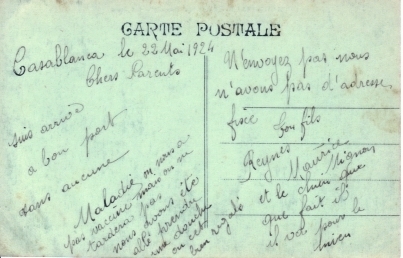 CARTE POSTALE
Casablanca le 22 Mai 1924
Chers Parents
suis arrivé
a bon port
sans aucune
Maladie on nous a
pas vacciné mais on ne
tardera pas
nous avons été
allé prendre
une douche
on c'est
bien regalé
N'envoyez pas nous
n'avons pas d'adresse
fixée
fils
Reynes Maurice
Mignon
et le chien que
que fait il
il va pour le
mieu